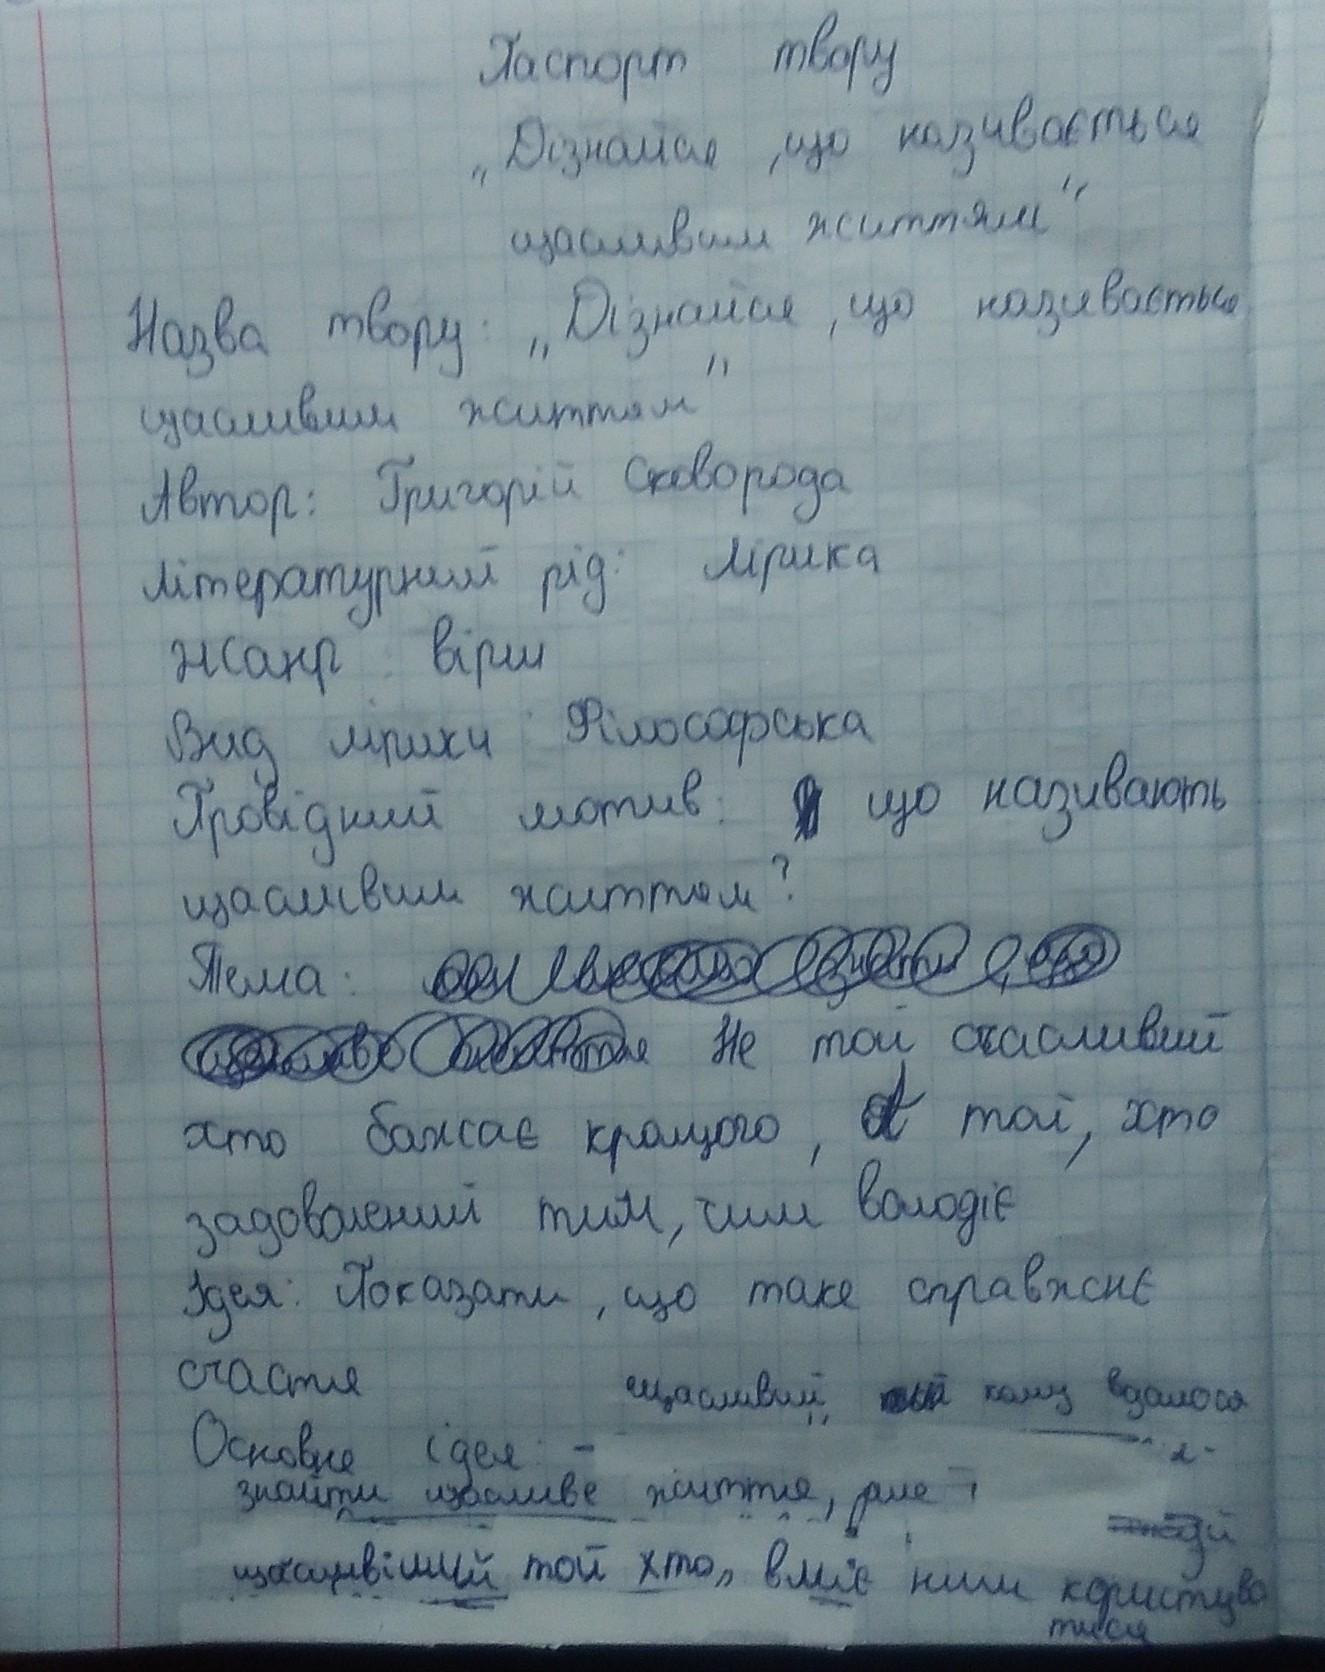 Паспорт твору
„Дізнайся, що називається
щасливим життям"
Назва твору: „Дізнайся, що називається
щасливим життям"
Автор: Григорій Сковорода
Літературний рід: лірика
Жанр: вірш
Вид лірики: Філософська
Провідний мотив: що називають
щасливим життям?
Тема:
Не той счасливий
хто бажає кращого, а той, хто
задоволений тим, чим володіє
Ідея: Показати, що таке справжнє
счастя
щасливий, кому вдалося
Основне ідея: -
знайти щасливе життя, але
щасливіший той хто, вміє ним користува
тися